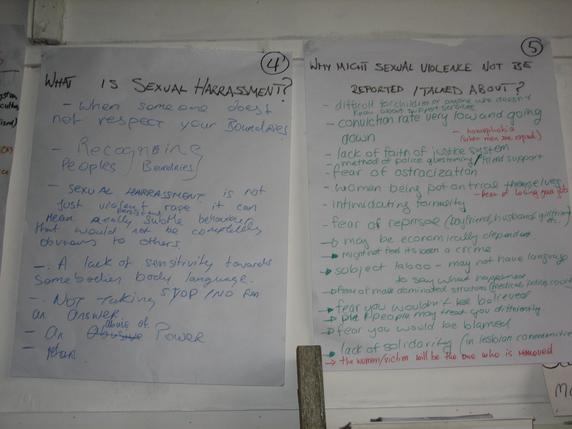 4
WHAT IS SEXUAL HARRASSMENT?
- When someone does
not respect your Boundries
- Recognising
Peoples Boundries
- SEXUAL HARRASSMENT is not
just violent rape it can
mean really subtle behaviour
persistent
that would not be completely
obvious to others.
- A lack of sensitivity towards
Somebodies body language.
- NOT taking STOP / NO AS
an answer.
- An abuse of Power
-
5
WHY MIGHT SEXUAL VIOLENCE NOT BE
REPORTED / TALKED ABOUT?
- difficult for children or anyone who doesn't
know about support services
- conviction rate very low and going
down
- homophobia
(when men are raped)
- lack of faith of justice system
- method of police questioning / trial support
- fear of ostracization
- women being put on trial themselves
- fear of losing your job
- intimidating formality
- fear of reprisal (boyfriend, husband, girlfriend
etc.)
- may be economically dependent
- might not feel its been a crime
- subject taboo - may not have language
to say what happened
- fear of male dominated structures (medical, police, court
- fear you wouldn't be believed
- people may treat you differently
- fear you would be blamed
- lack of solidarity (in lesbian communities
→ the women/victim will be the one who is removed